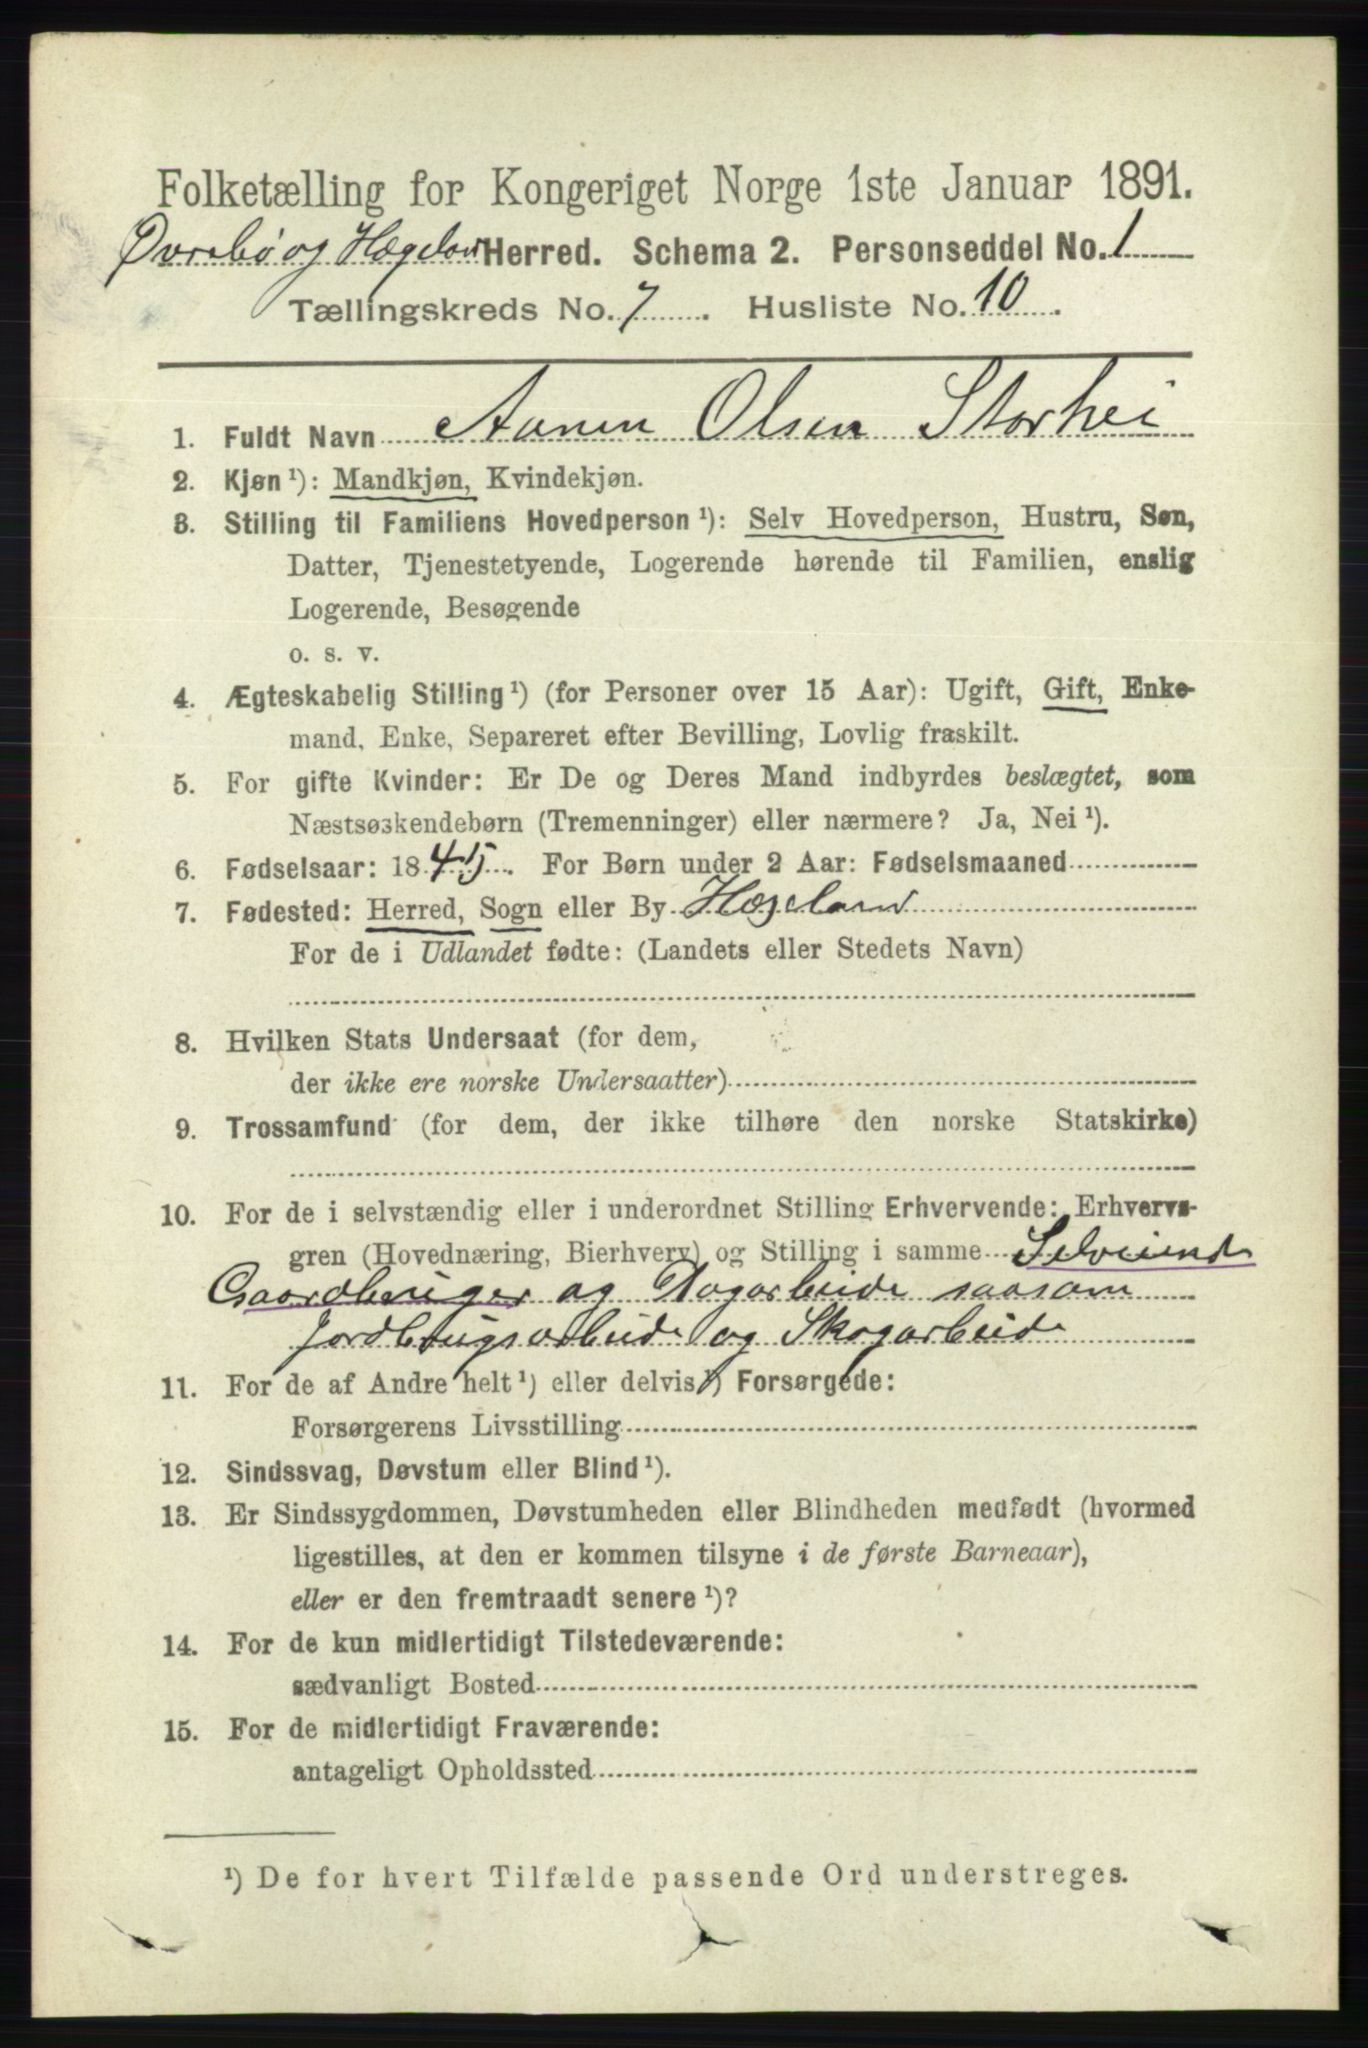 Folketælling for Kongeriget Norge 1ste Januar 1891.
Øvrebø og Hægeland Herred. Schema 2. Personseddel No. 1
Tællingskreds No. 7. Husliste No. 10.
1. Fuldt Navn Aanen Olsen Storhei
2. Kjøn ¹): Mandkjøn, Kvindekjøn.
3. Stilling til Familiens Hovedperson ¹): Selv Hovedperson, Hustru, Søn,
Datter, Tjenestetyende, Logerende hørende til Familien, enslig
Logerende, Besøgende
o. s. v.
4. Ægteskabelig Stilling ¹) (for Personer over 15 Aar): Ugift, Gift, Enke-
mand, Enke, Separeret efter Bevilling, Lovlig fraskilt.
5. For gifte Kvinder: Er De og Deres Mand indbyrdes beslægtet, som
Næstsøskendebørn (Tremenninger) eller nærmere? Ja, Nei ¹).
6. Fødselsaar: 1845. For Børn under 2 Aar: Fødselsmaaned
7. Fødested: Herred, Sogn eller By Hægeland
For de i Udlandet fødte: (Landets eller Stedets Navn)
8. Hvilken Stats Undersaat (for dem,
der ikke ere norske Undersaatter)
9. Trossamfund (for dem, der ikke tilhøre den norske Statskirke)
10. For de i selvstændig eller i underordnet Stilling Erhvervende: Erhvervs-
gren (Hovednæring, Bierhverv) og Stilling i samme Selveiend
Gaardbruger og Dagarbeide saasom
Jordbrugsarbeide og Skogarbeide
11. For de af Andre helt ¹) eller delvis ¹) Forsørgede:
Forsørgerens Livsstilling
12. Sindssvag, Døvstum eller Blind ¹).
13. Er Sindssygdommen, Døvstumheden eller Blindheden medfødt (hvormed
ligestilles, at den er kommen tilsyne i de første Barneaar),
eller er den fremtraadt senere ¹)?
14. For de kun midlertidigt Tilstedeværende:
sædvanligt Bosted
15. For de midlertidigt Fraværende:
antageligt Opholdssted
¹) De for hvert Tilfælde passende Ord understreges.